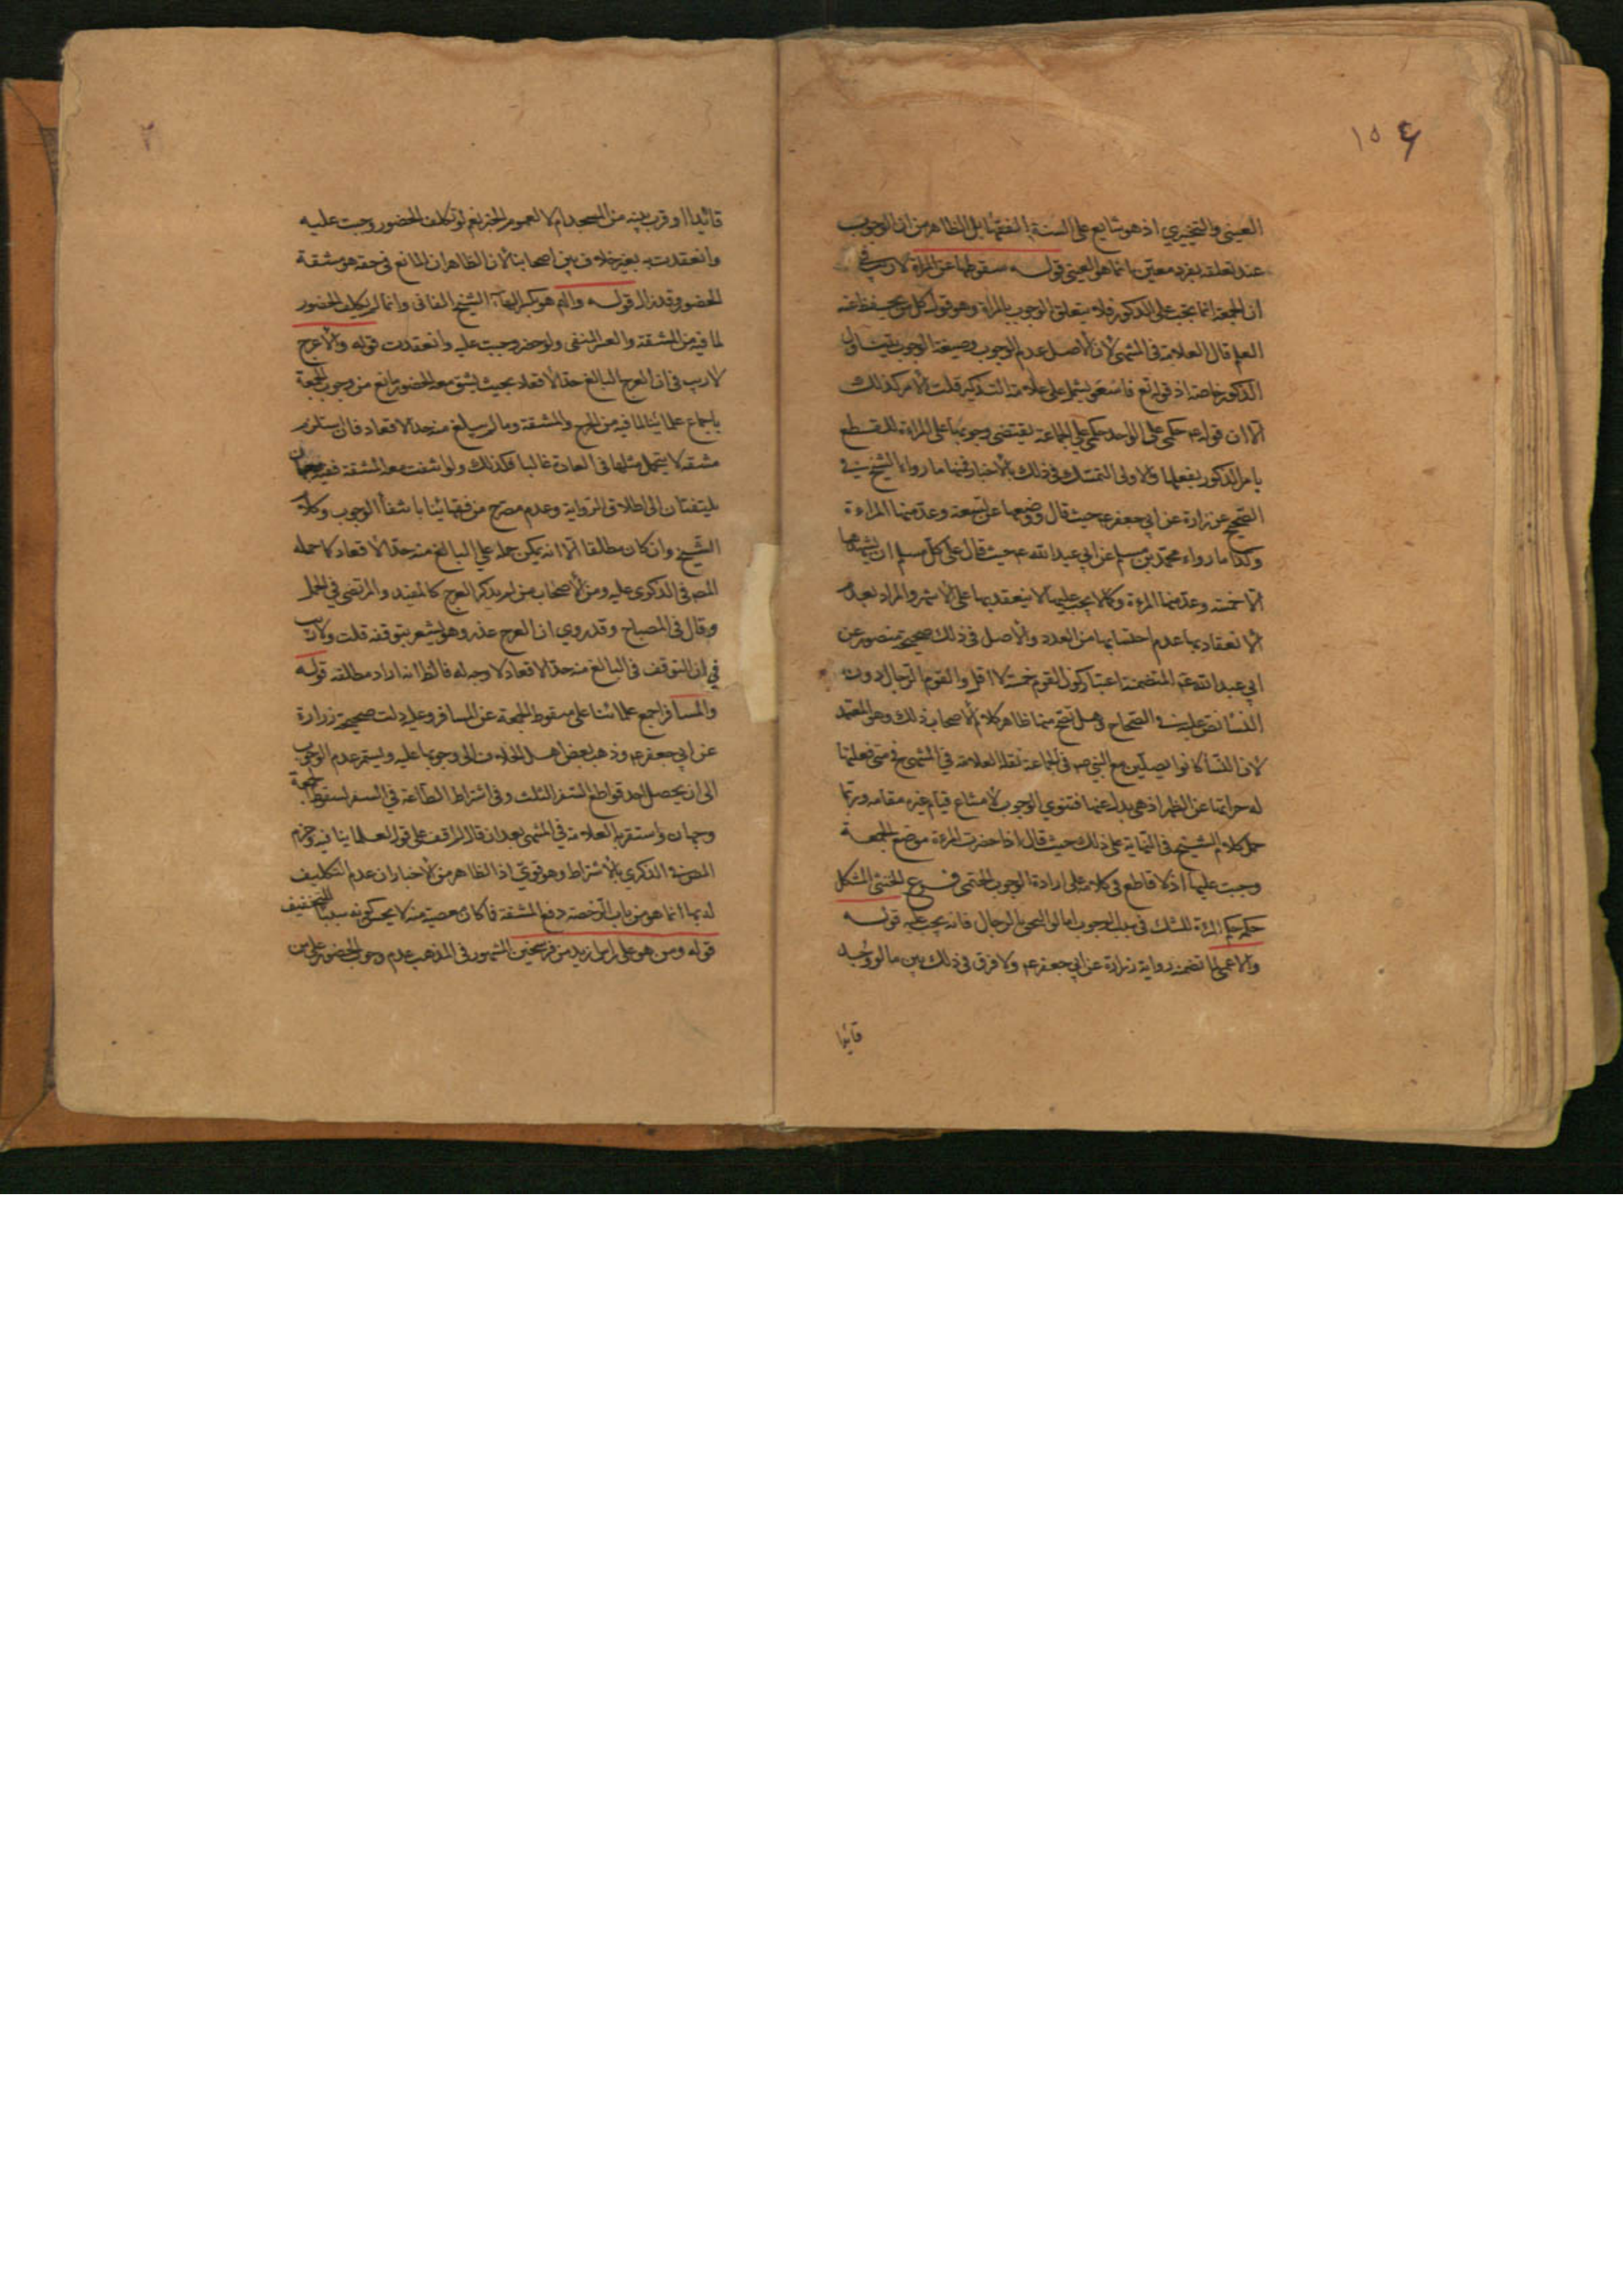 ١٥٤
العيني والتخييري اذ هو شايع على السنة الفقها بل الظاهر من ان الوجوب
عند تعلقه بفرد معين انما هو العيني قوله سقوطها عن المراة لا ريب في
ان الجمعة انما تجب على الذكور فلا يتعلق الوجوب بالمراة وهو قول كل من يحفظ عنه
العلم قال العلامة في المنتهى لان الاصل عدم الوجوب وصيغة الوجوب يتناول
الذكور خاصة اذ قوله تع فاسعوا يشمل على علامة التذكير قلت الامر كذلك
الا ان قوله ع حكمي على الواحد حكمي على الجماعة يقتضي وجوبها على المراة للقطع
بامر الذكور بفعلها والاولى التمسك في ذلك بالاخبار فمنها ما رواه الشيخ في
الصحيح عن زرارة عن ابي جعفر ع حيث قال ووضعها عن تسعة وعد منها المراءة
وكذا ما رواه محمد بن مسلم عن ابي عبد الله ع حيث قال على كل مسلم ان يشهدها
الا خمسة وعد منها المرءة وكما لا يجب عليها لا ينعقد بها على الاشهر والمراد بعدم
الانعقاد بها عدم احتسابها من العدد والاصل في ذلك صحيحة منصور عن
ابي عبد الله ع المتضمنة اعتبار كون القوم خمسة لا اقل والقوم الرجال دون
النسا نص عليه في الصحاح وهل تصح منها ظاهر كلام الاصحاب ذلك وهو المعتمد
لان النسا كانوا يصلين مع النبي ص في الجماعة نقله العلامة في المنتهى فمتى فعلتها
له جزاتها عن الظهر اذ هي بدل عنها فتنوي الوجوب لامتناع قيام غيره مقامه وربما
حمل كلام الشيخ في النهاية على ذلك حيث قال اذا حضرت المرءة موضع الجمعة
وجبت عليها اذ لا قاطع في كلامه على ارادة الوجوب الحتمي فرع الخنثى المشكل
حكمه حكم المرءة للشك في سبب الوجوب اما لو التحق بالرجال فانه يجب عليه قوله
والاعمى لما تضمنه رواية زرارة عن ابي جعفر ع ولا فرق في ذلك بين ما لو وجد
قائدا
قائدا او قرب بيته من المسجد ام لا لعموم الخبر نعم لو تكلف الحضور وجبت عليه
وانعقدت به بغير خلاف بين اصحابنا لان الظاهر ان المانع في حقه هو مشقة
الحضور وقد زال قوله والهم هو بكسر الهاء الشيخ الفاني وانما لم يكلف الحضور
لما فيه من المشقة والعسر المنفي ولو حضر وجبت عليه وانعقدت قوله والاعرج
لا ريب في ان العرج البالغ حد الاقعاد بحيث يشق معه الحضور مانع من وجوب الجمعة
باجماع علمائنا لما فيه من الحرج والمشقة وما لم يبلغ منه حد الاقعاد فان استلزم
مشقة لا يتحمل مثلها في العادة غالبا فكذلك ولو انتفت معه المشقة ففيه وجهان
يلتفتان الى اطلاق الرواية وعدم مصرح من فقهائنا بانتفاء الوجوب وكلام
الشيخ وان كان مطلقا الا انه يمكن حمله على البالغ منه حد الاقعاد كما حمله
المص في الذكرى عليه ومن الاصحاب من لم يذكر العرج كالمفيد والمرتضى في الجمل
وقال في المصباح وقد روي ان العرج عذر وهو يشعر بتوقفه قلت ولا ريب
في ان التوقف في البالغ منه حد الاقعاد لا وجه له فالظ انه اراد مطلقه قوله
والمسافر اجمع علمائنا على سقوط الجمعة عن المسافر وعليه دلت صحيحة زرارة
عن ابي جعفر ع وذهب بعض اهل الخلاف الى وجوبها عليه ويستمر عدم الوجوب
الى ان يحصل احد قواطع السفر الثلث وفي اشتراط الطاعة في السفر لسقوط الجمعة
وجهان واستقربه العلامة في المنتهى بعد ان قال لم اقف على قول لعلمائنا فيه وجزم
المص في الذكرى بالاشتراط وهو قوي اذ الظاهر من الاخبار ان عدم التكليف
له بها انما هو من باب الرخصة دفع المشقة فما كان معصية منه لا يحسن كونه سببا للتخفيف
قوله ومن هو على راس ازيد من فرسخين المشهور في المذهب عدم وجوب الحضور على من